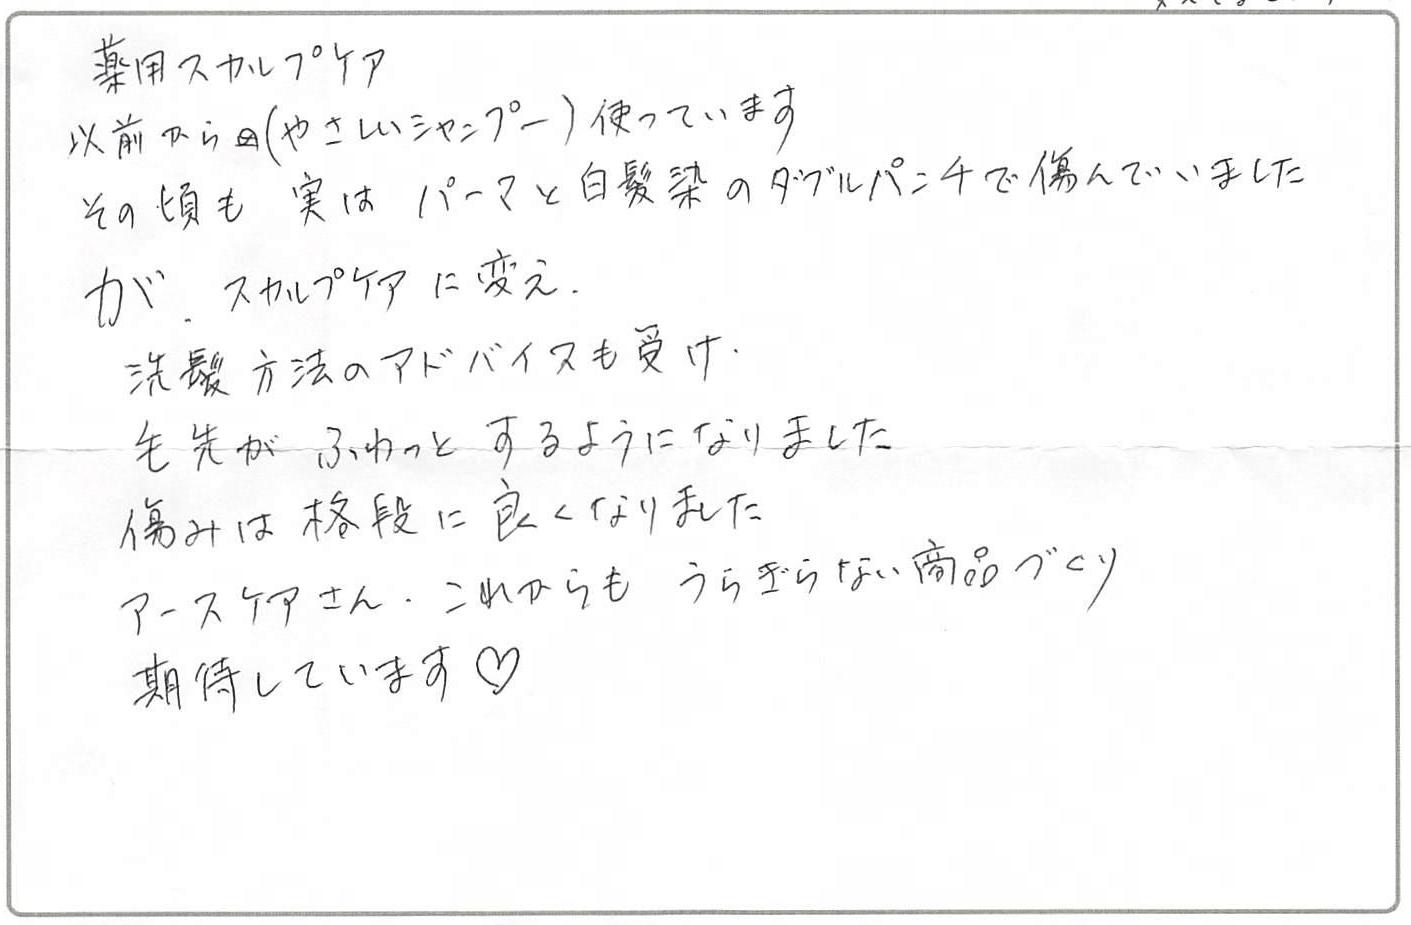 薬用スカルプケア
以前から(やさしいシャンプー)使っています
その頃も 実は パーマと白髪染のダブルパンチで傷んでいました
が、スカルプケアに変え、
洗髪方法のアドバイスも受け、
毛先が ふわっと するようになりました
傷みは格段に良くなりました
アースケアさん、これからも うらぎらない商品づくり
期待しています♡